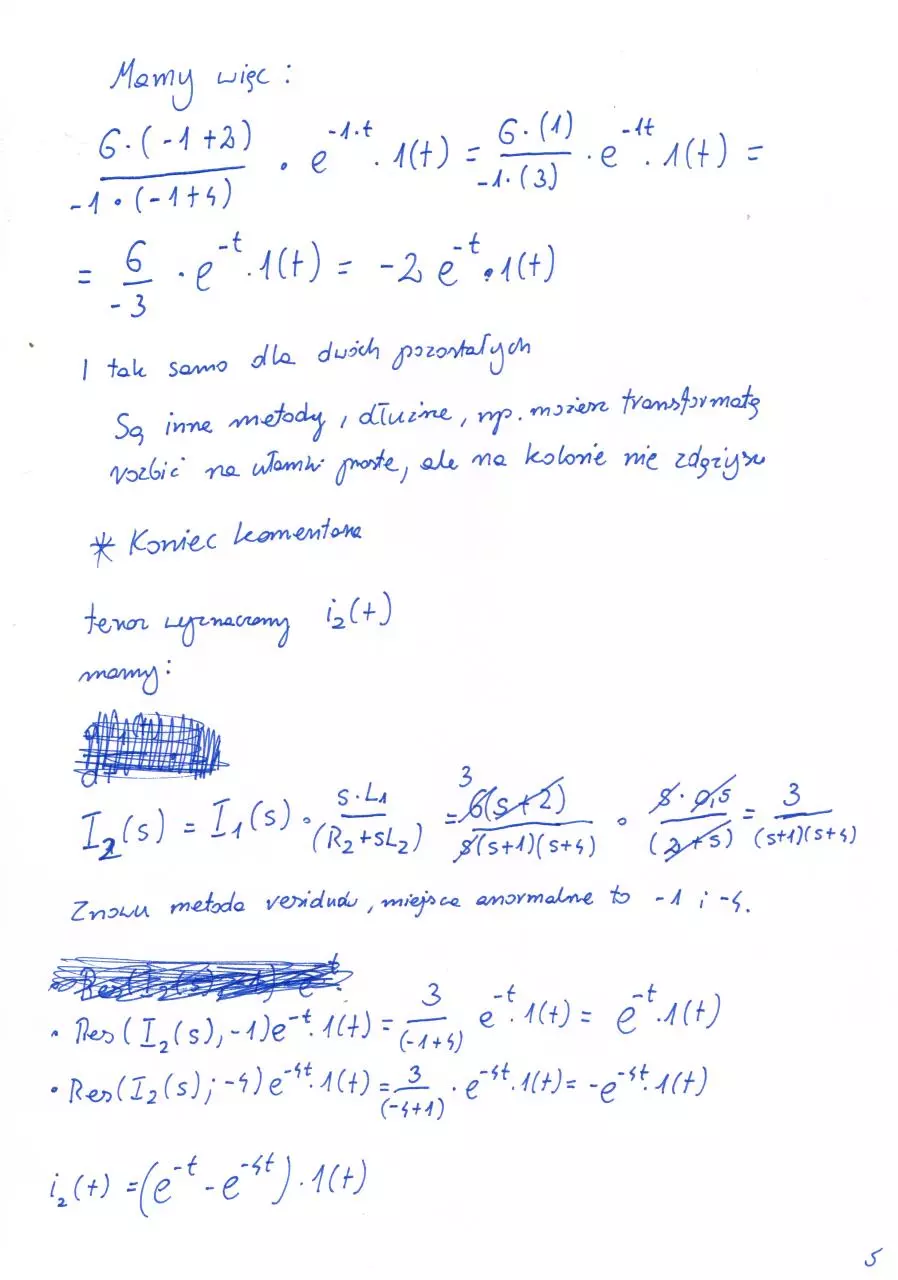 Mamy więc:
6·(-1+2) / -1·(-1+4) · e^{-1·t} · 1(t) = 6·(1) / -1·(3) · e^{-1t} · 1(t) =
= 6 / -3 · e^{-t} · 1(t) = -2 e^{-t} · 1(t)
I tak samo dla dwóch pozostałych
Są inne metody, dłuższe, np. możesz transformatę
rozbić na ułamki proste, ale na kolosie nie zdążysz
* Koniec komentarza
teraz wyznaczamy i₂(t)
mamy:
I₂(s) = I₁(s) · s·L₁ / (R₂+sL₂) = 3 6(s+2) / s(s+1)(s+4) · s·0,5 / (2+s) = 3 / (s+1)(s+4)
Znowu metoda residuów, miejsca anormalne to -1 i -4.
• Res(I₂(s),-1)e^{-t}·1(t) = 3 / (-1+4) e^{-t}·1(t) = e^{-t}·1(t)
• Res(I₂(s);-4)e^{-4t}·1(t) = 3 / (-4+1) · e^{-4t}·1(t) = -e^{-4t}·1(t)
i₂(t) = (e^{-t} - e^{-4t})·1(t)
5